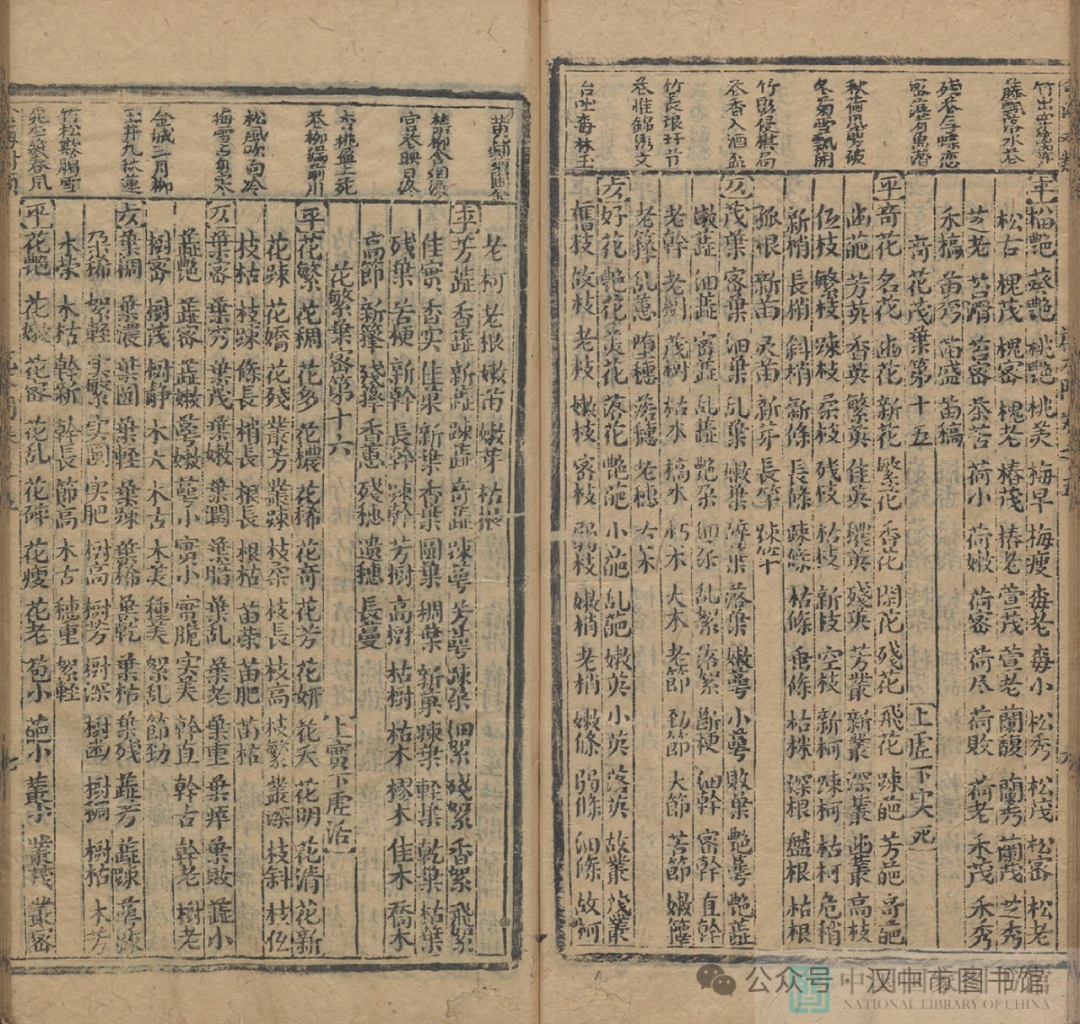 残春与蝶恋
密藻有魚潛
冬菊雪飄開
竹影侵棋局
茶香入酒盃
【平】葵艷 桃艷 桃美 梅早 梅瘦 松秀 松茂 松密 松老
松古 槐茂 槐密 槐老 椿茂 椿老 萱茂 萱老 蘭馥 蘭秀 蘭茂 芝秀
芝老 苔滑 苔密 茶苦 荷小 荷嫩 荷密 荷尽 荷敗 荷老 禾茂 禾秀
禾槁 苗秀 苗盛 苗稿
奇花茂葉第十五 【上虛下实死】
【平】奇花 名花 幽花 新花 繁花 香花 閑花 残花 飛花 疎葩 芳葩 奇葩
幽葩 芳英 香英 繁英 佳英 穠英 殘英 芳叢 新叢 深叢 幽叢 高枝
低枝 繁枝 疎枝 柔枝 残枝 枯枝 新枝 空枝 新柯 疎柯 枯柯 危梢
新梢 長梢 斜梢 新條 長條 疎條 枯條 垂條 枯株 深根 盤根 枯根
孤根 新苗 灵苗 新芽 長竿 疎竿
【仄】茂葉 密葉 細葉 乱葉 嫩葉 碎葉 落葉 嫩萼 小萼 敗葉 艷萼 艷蕋
嫩蕋 細蕋 密蕋 乱蕋 艷朵 細朵 乱絮 落絮 斷梗 細幹 密幹 直幹
老幹 老樹 茂樹 枯木 槁木 朽木 大木 老節 劲節 大節 芳節 嫩籜
老籜 堕穗 老穗 古木
【仄】好花 艷花 美花 落花 艷葩 小葩 乱葩 嫩英 小英 落英 故叢 浅叢
舊枝 故枝 老枝 嫩枝 密枝 弱枝 嫩梢 老梢 嫩條 弱條 細條 故柯
松風吹面冷
金城三月柳
玉井九秋蓮
竹松欺腊雪
老柯 老根 嫩苗 嫩芽 枯根
【平】芳蕋 香蕋 新蕋 疎蕋 奇蕋 疎萼 芳萼 疎朵 細絮 殘絮 香絮 飛絮
佳實 香实 佳菓 新葉 香葉 圓葉 稠葉 新菓 疎葉 輕葉 乾葉 枯葉
残葉 芳梗 新幹 長幹 疎幹 芳樹 高樹 枯樹 枯木 樛木 佳木 喬木
高節 新籜 殘籜 香蕙 殘穗 遺穗 長蔓
花繁葉密第十六 【上實下虛活】
【平】花繁 花稠 花多 花穠 花稀 花奇 花芳 花妍 花夭 花明 花清 花新
花疎 花嬌 花殘 叢芳 叢疎 枝柔 枝長 枝高 枝繁 叢深 枝斜 枝低
枝枯 枝疎 條長 梢長 根長 根枯 苗柴 苗肥 苗枯
【仄】葉密 葉茂 葉嫩 葉潤 葉暗 葉乱 葉老 葉重 葉瘁 葉敗 蕋小
蕋艷 蕋密 蕋嫩 萼嫩 萼小 實小 實脆 实美 幹直 幹古 幹老 樹老
樹密 樹茂 樹静 木大 木古 木美 種美 絮乱 節劲
【仄】葉凋 葉濃 葉圓 葉輕 葉疎 葉稀 葉乾 葉枯 葉残 蕋芳 蕋疎 萼疎
朵稀 絮輕 实繁 实圓 实肥 樹高 樹芳 樹深 樹幽 樹枯 木芳
木荣 木枯 幹新 幹長 節高 木古 穗重 絮輕
【平】花艷 花嫩 花密 花乱 花碎 花瘦 花老 苞小 葩小 叢小 叢茂 叢密
公众号 · 汉中市图书馆
NATIONAL LIBRARY OF CHINA